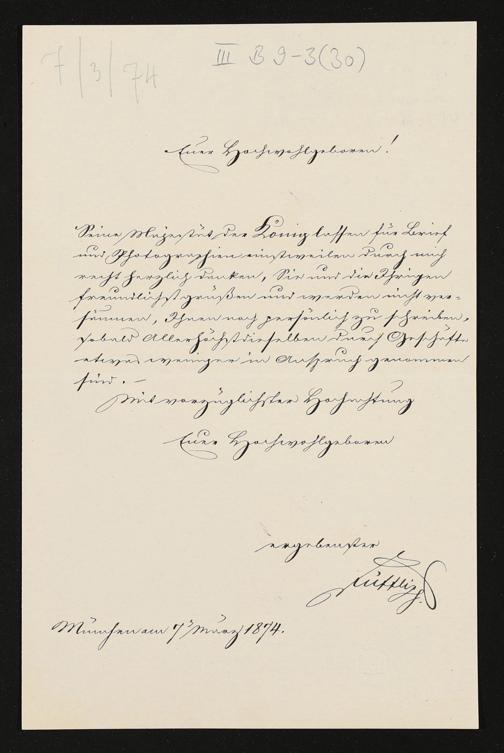 7/3/74
III B 9-3(30)
Euer Hochwohlgeboren!
Seine Majestät der König lassen für Brief
und Photographien einstweilen durch mich
recht herzlich danken, Sie und die Ihrigen
freundlichst grüßen und werden nicht ver-
säumen, Ihnen noch persönlich zu schreiben,
sobald Allerhöchstdieselben durch Geschäfte
etwas weniger in Anspruch genommen
sind. –
Mit vorzüglichster Hochachtung
Euer Hochwohlgeboren
ergebenster
München am 7. März 1874.